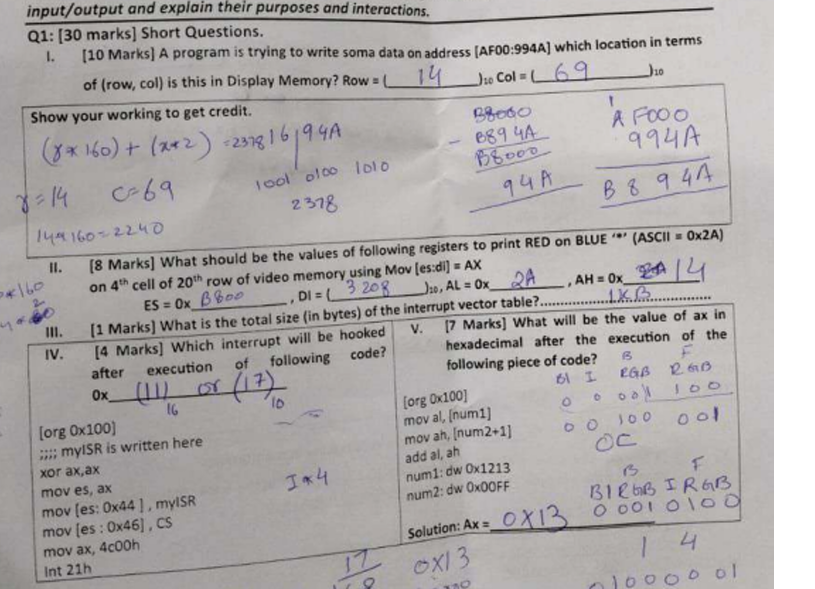 input/output and explain their purposes and interactions.
Q1: [30 marks] Short Questions.
I. [10 Marks] A program is trying to write soma data on address [AF00:994A] which location in terms
of (row, col) is this in Display Memory? Row = ( 14 )10 Col = ( 69 )10
Show your working to get credit.
(r*160) + (x*2) =2378
r=14 C=69
14*160=2240
16 94A
1001 0100 1010
2378
B8000
- B894A
B8000
94A
1
AF000
994A
B894A
II. [8 Marks] What should be the values of following registers to print RED on BLUE '*' (ASCII = 0x2A)
on 4th cell of 20th row of video memory using Mov [es:di] = AX
ES = 0x B800 , DI = ( 3208 )10, AL = 0x 2A , AH = 0x 14
III. [1 Marks] What is the total size (in bytes) of the interrupt vector table?.......... 1KB
IV. [4 Marks] Which interrupt will be hooked
after execution of following code?
0x (11)16 or (17)10
[org 0x100]
;;;; myISR is written here
xor ax,ax
mov es, ax
mov [es: 0x44 ] , myISR
mov [es : 0x46] , CS
mov ax, 4c00h
Int 21h
I*4
V. [7 Marks] What will be the value of ax in
hexadecimal after the execution of the
following piece of code?
B F
Bl I RGB RGB
0 0 001 100
00 100 001
0C
[org 0x100]
mov al, [num1]
mov ah, [num2+1]
add al, ah
num1: dw 0x1213
num2: dw 0x00FF
B F
BIRGB IRGB
0001 0100
Solution: Ax = 0X13
1 4
17
0X13
01000001